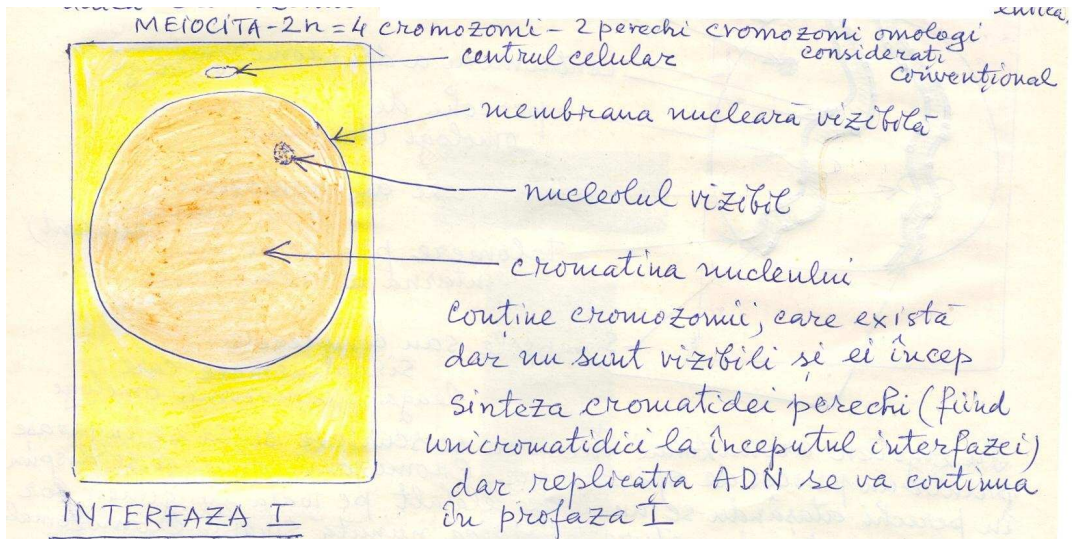 MEIOCITA - 2n = 4 cromozomi - 2 perechi cromozomi omologi
considerați
convențional
centrul celular
membrana nucleară vizibilă
nucleolul vizibil
cromatina nucleului
conține cromozomii, care există
dar nu sunt vizibili și ei încep
sinteza cromatidei perechi (fiind
unicromatidici la începutul interfazei)
dar replicația ADN se va continua
în profaza I
INTERFAZA I